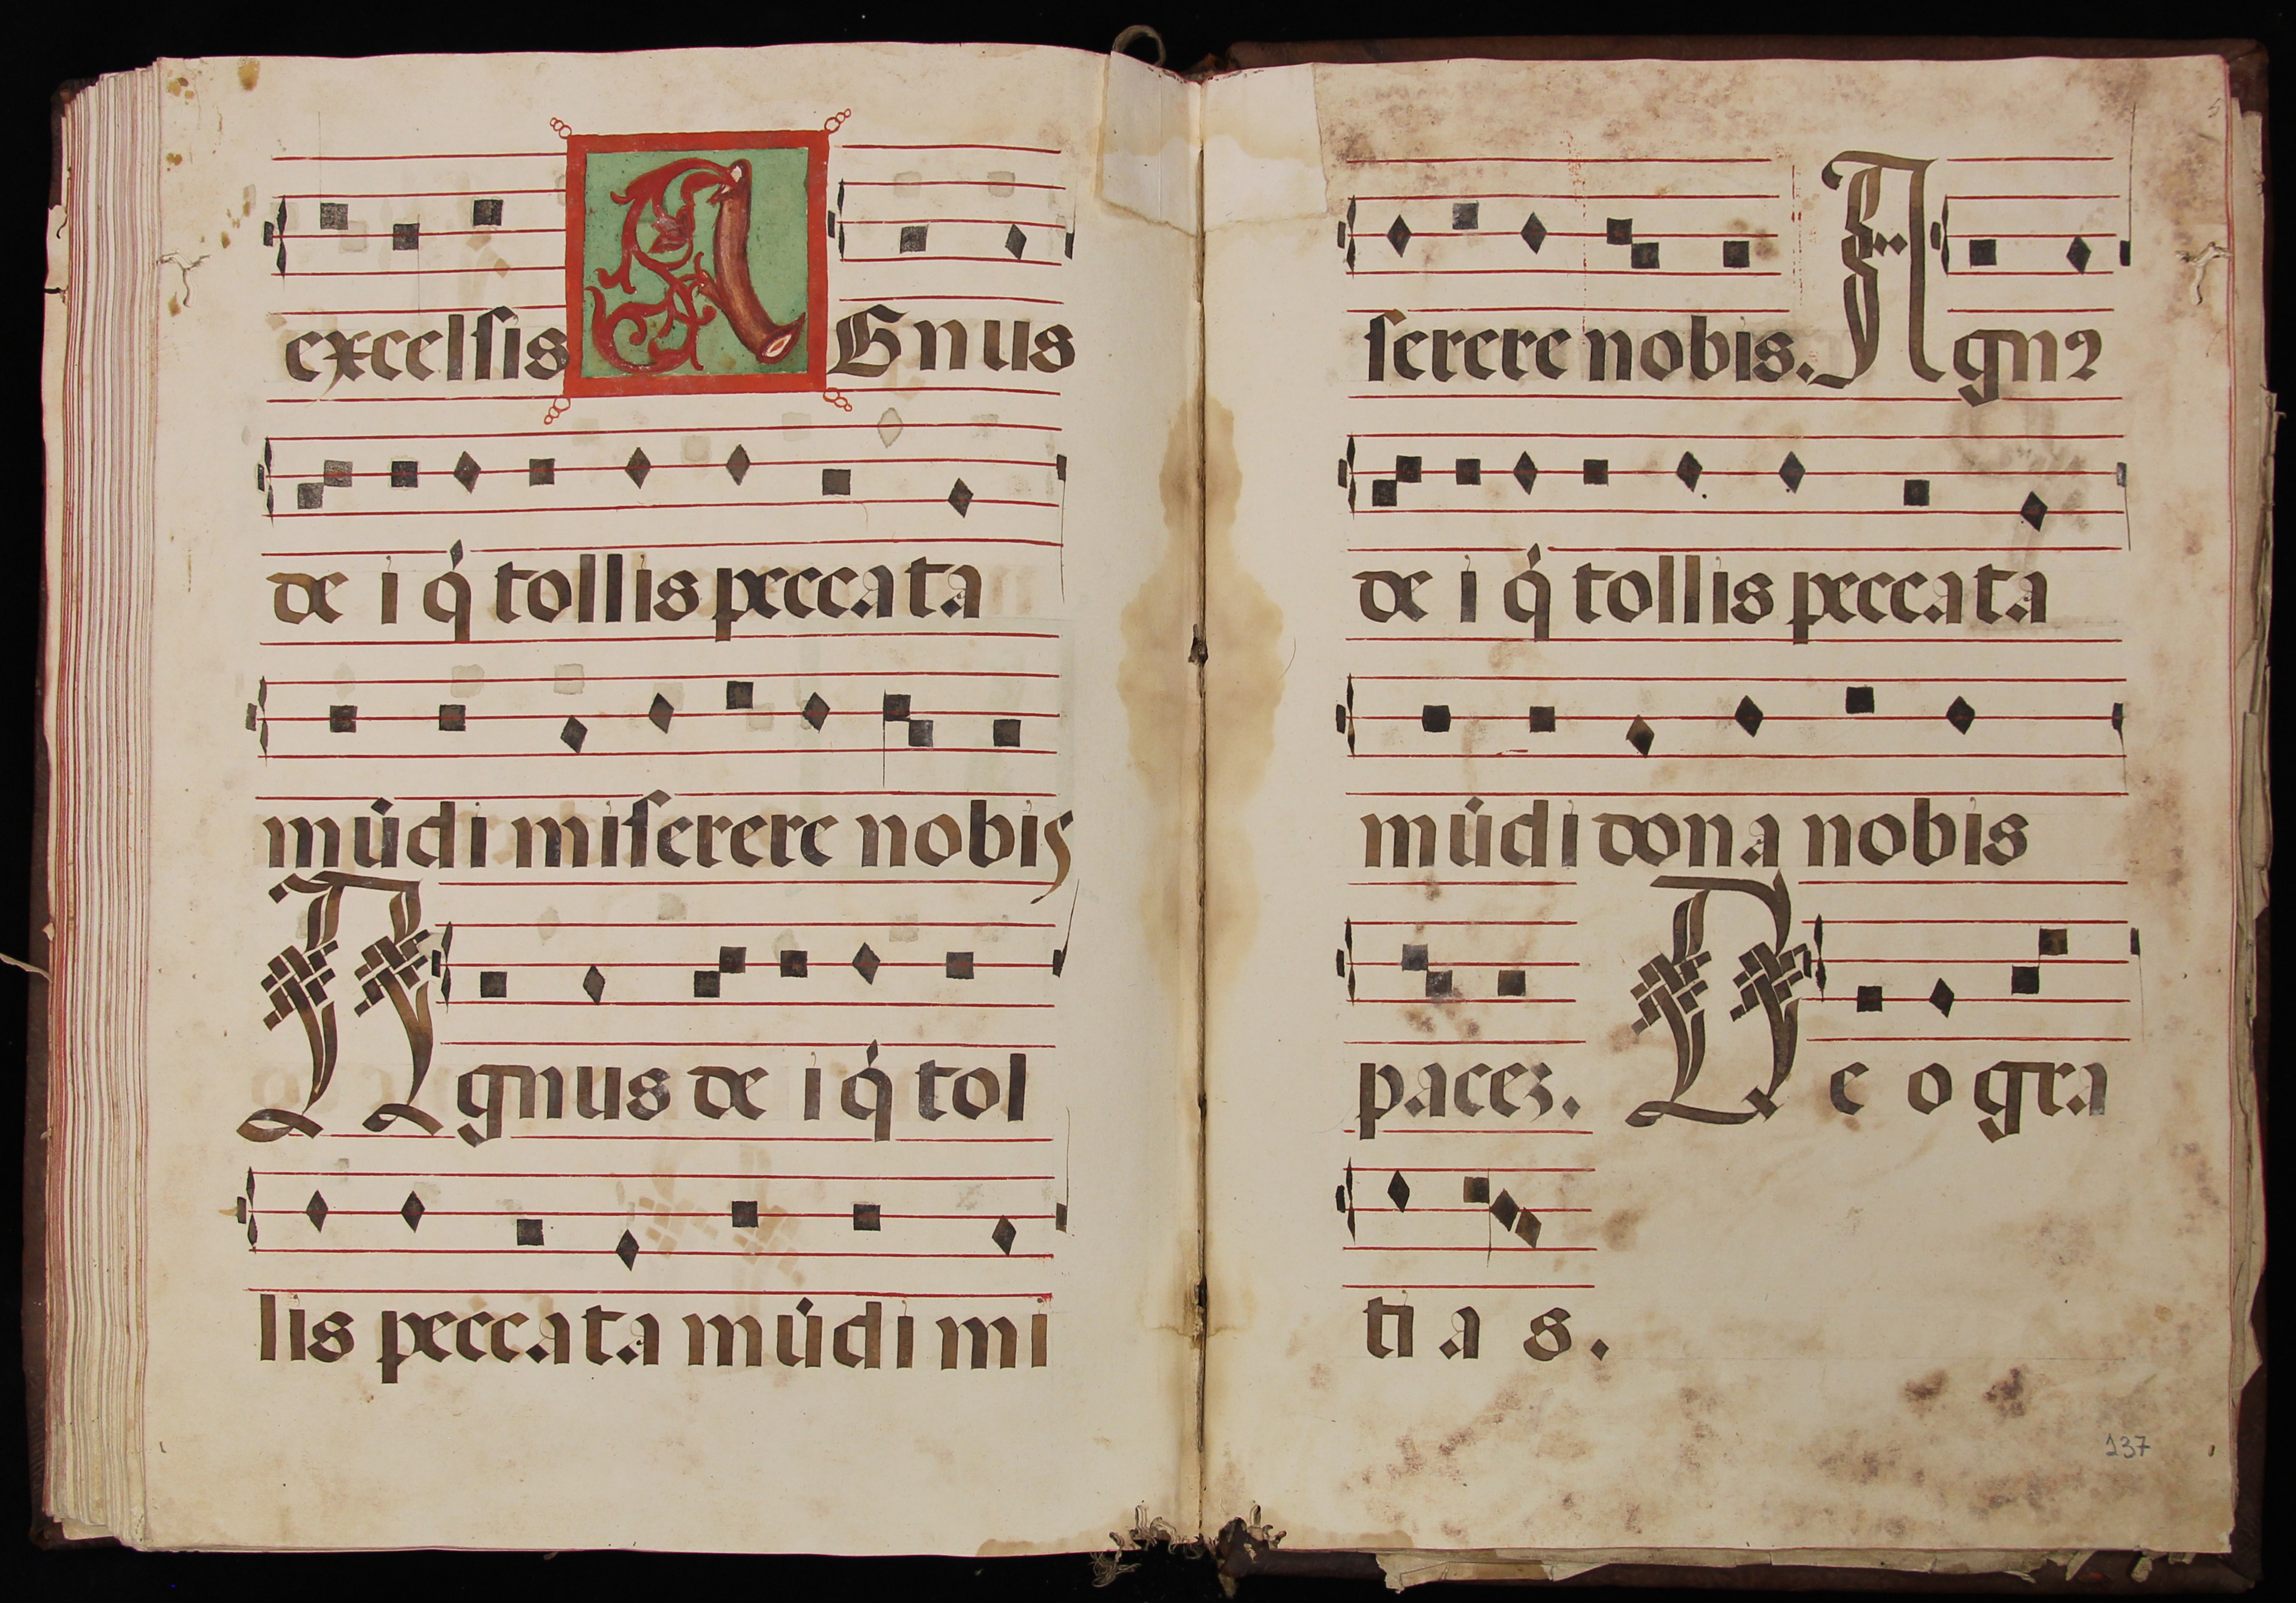 excelſis AGnus
de i q́ tollis peccata
mūdi miſerere nobis
Agnus de i q́ tol
lis peccata mūdi mi
ſerere nobis. Agnꝰ
de i q́ tollis peccata
mūdi dona nobis
paceꝫ. De o gra
ti a s.
137